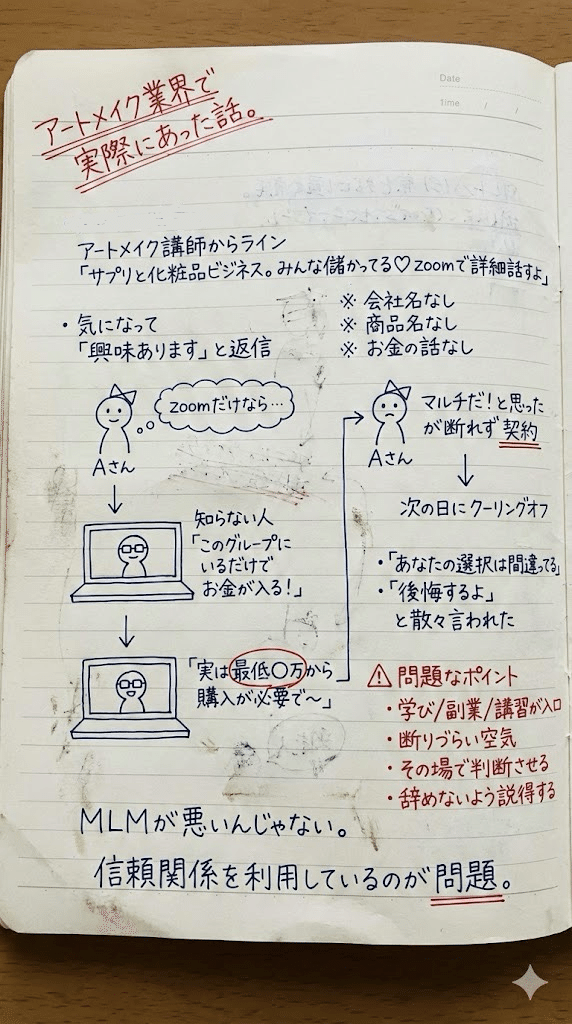 Date
time / /
アートメイク業界で
実際にあった話。
アートメイク講師からライン
「サプリと化粧品ビジネス。みんな儲かってる♡zoomで詳細話すよ」
・気になって
「興味あります」と返信
※ 会社名なし
※ 商品名なし
※ お金の話なし
zoomだけなら…
Aさん
知らない人
「このグループに
いるだけで
お金が入る！」
「実は最低〇万から
購入が必要で〜」
マルチだ！と思った
が断れず契約
Aさん
次の日にクーリングオフ
・「あなたの選択は間違ってる」
・「後悔するよ」
と散々言われた
⚠ 問題なポイント
・学び/副業/講習が入口
・断りづらい空気
・その場で判断させる
・辞めないよう説得する
MLMが悪いんじゃない。
信頼関係を利用しているのが問題。